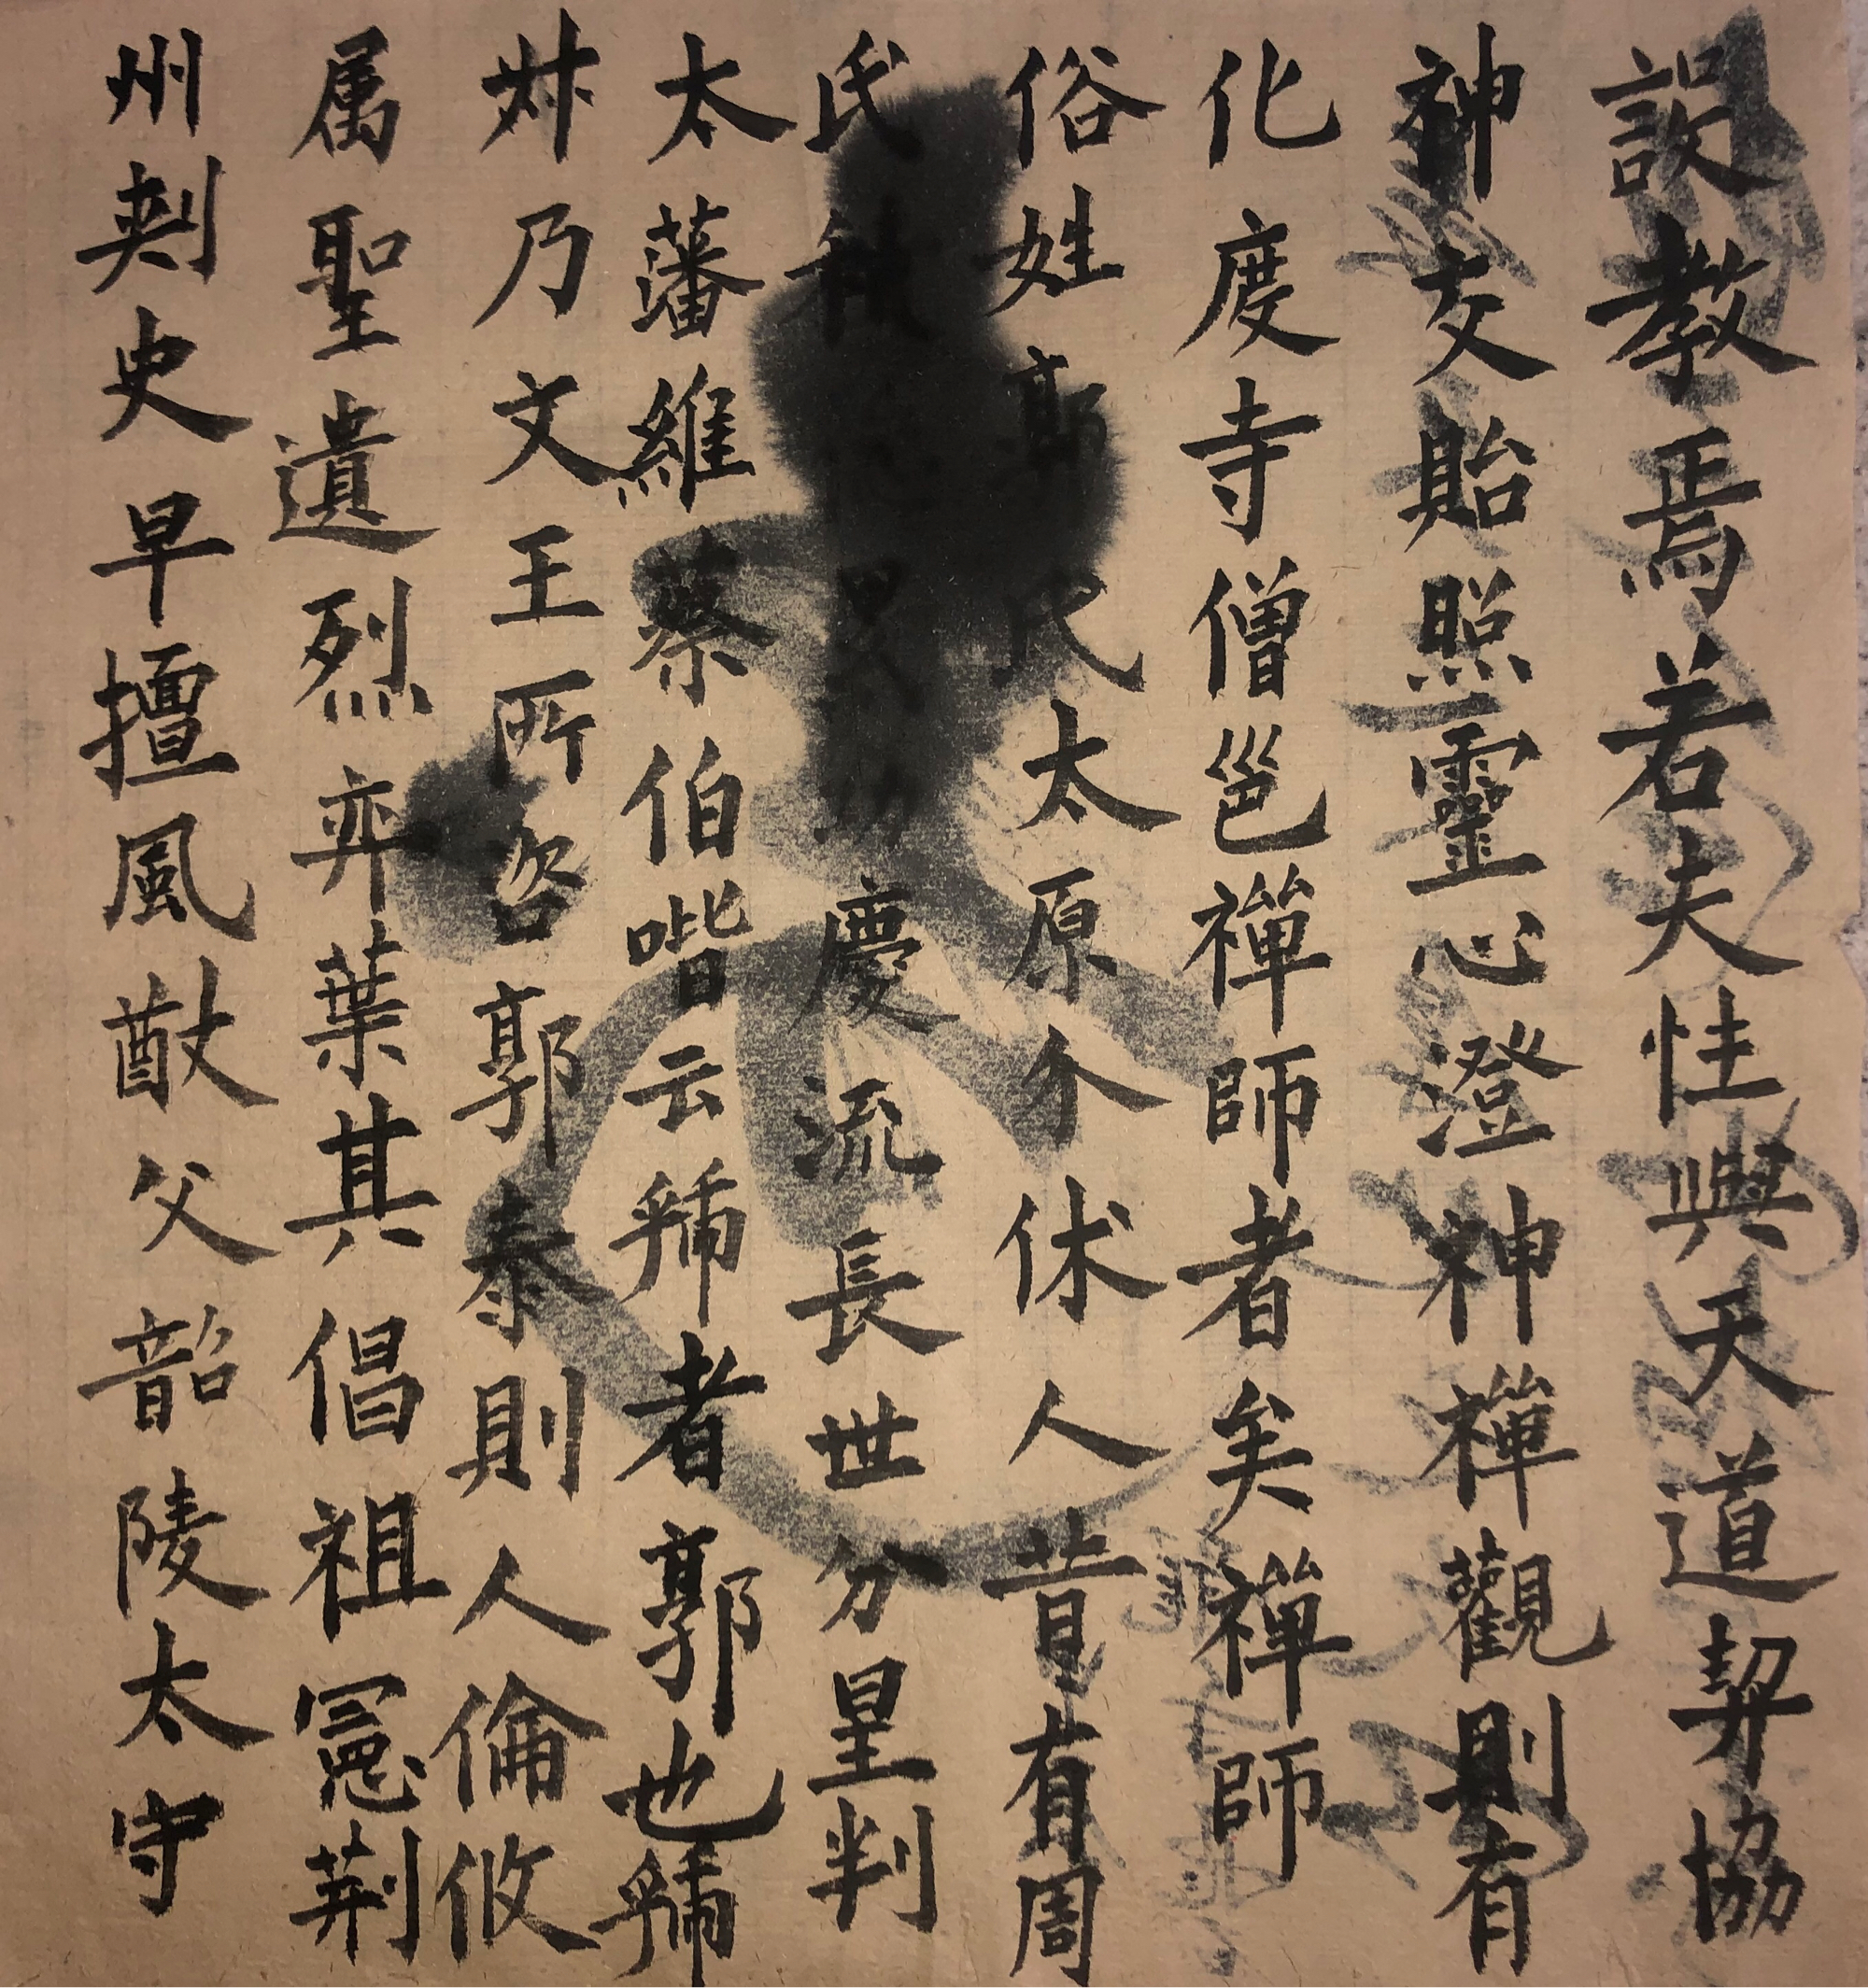 設教焉若夫性與天道契協
神交貽照靈心澄神禪觀則有
化度寺僧邕禪師者矣禪師
俗姓郭氏太原介休人昔有周
氏積累功慶流長世分星判
太藩維蔡伯喈云虢者郭也虢
叔乃文王所咨郭泰則人倫攸
属聖遺烈弈葉其倡祖憲荊
州刺史早擅風猷父韶陵太守